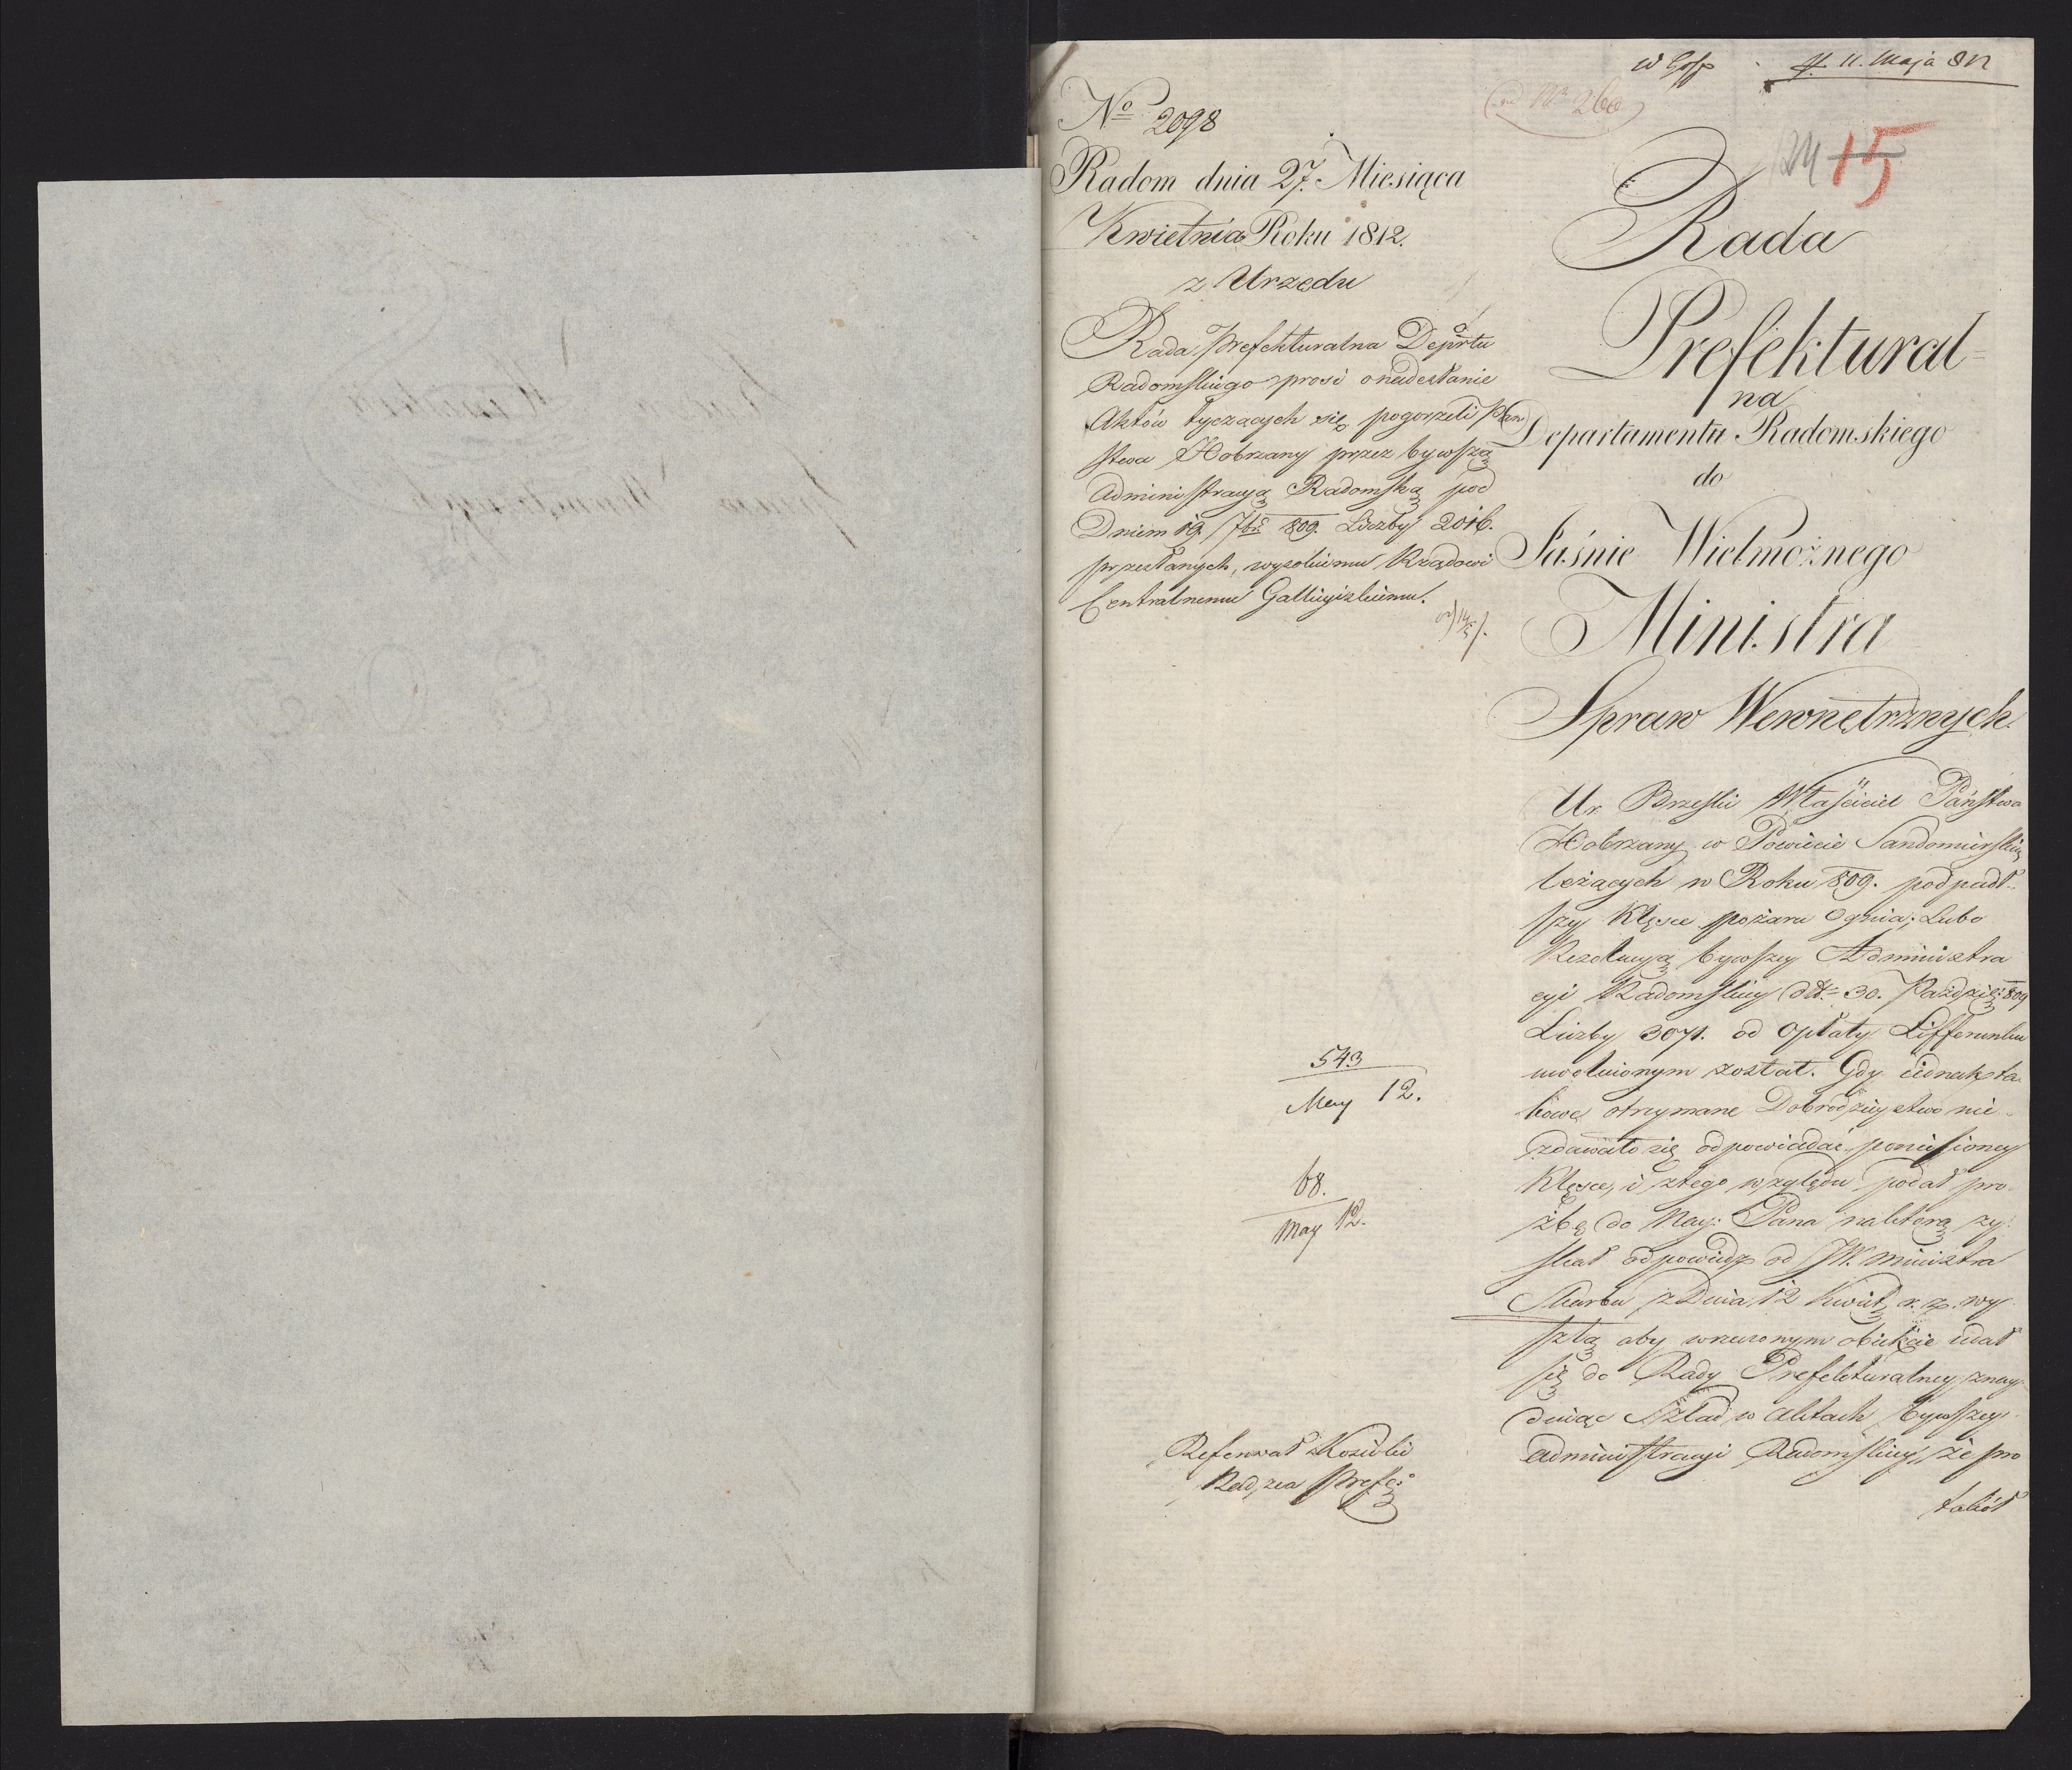 w Gosp
11. Maja 812
Nº 2098
15
Radom dnia 27. Miesiąca
Kwietnia Roku 1812.
z Urzędu
Rada Prefekturalna Deprtu
Radomskiego prosi o nadesłanie
Aktów tyczących się pogorzeli Pan
stwa Kobrzany przez bywszą
Administracyą Radomską pod
Dniem 19. 7br 809. Liczby 2016.
przesłanych, wysokiemu Rządowi
Centralnemu Gallicyiskiemu.
Rada
Prefektural=
na
Departamentu Radomskiego
do
Jaśnie Wielmożnego
Ministra
Spraw Wewnętrznych.
Ur. Brzeski Właściciel Państwa
Kobrzany w Powiecie Sandomirskim
leżących w Roku 809. podpadł-
szy Klęsce pożaru Ognia; Lubo
Rezolucyą bywszey Administra
cyi Radomskiey dtt 30. Paździe: 809
Liczby 3071. od Opłaty Lifferunku
uwolnionym został. Gdy iednak ta
kowe otrzymane Dobrodzieystwo nie
zdawało się odpowiadać poniesioney
Klęsce, i ztego względu podał pro
źbę do Nay: Pana na którą zy
skał odpowiedz od JW. Ministra
Skarbu z Dnia 12 Kwiet. r. z. wy
szłą aby wrzeczonym obiekcie udał
się do Rady Prefekturalney znay
duiąc szlad w Aktach bywszey
administracyi Radomskiey, że pro
tokół
543
May 12.
68.
May 12.
Referował Kosicki
Radzca Prefe: